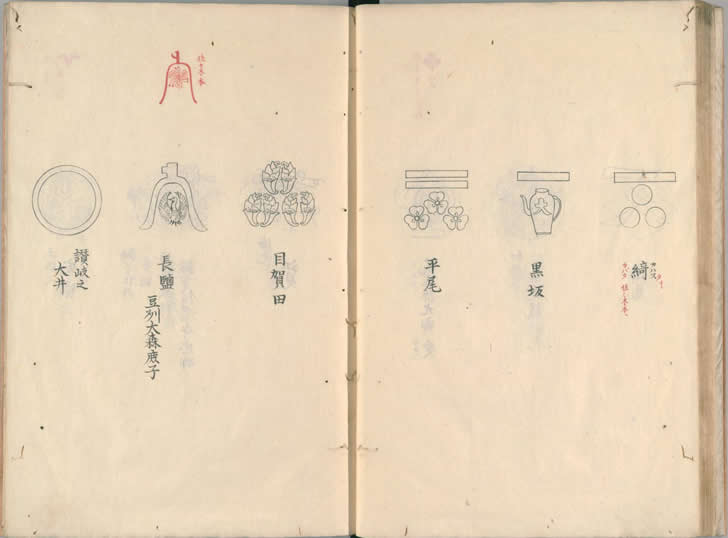 綺
黒坂
平尾
目賀田
長鹽
豆列大森庶子
讃岐之
大井
佐々木本